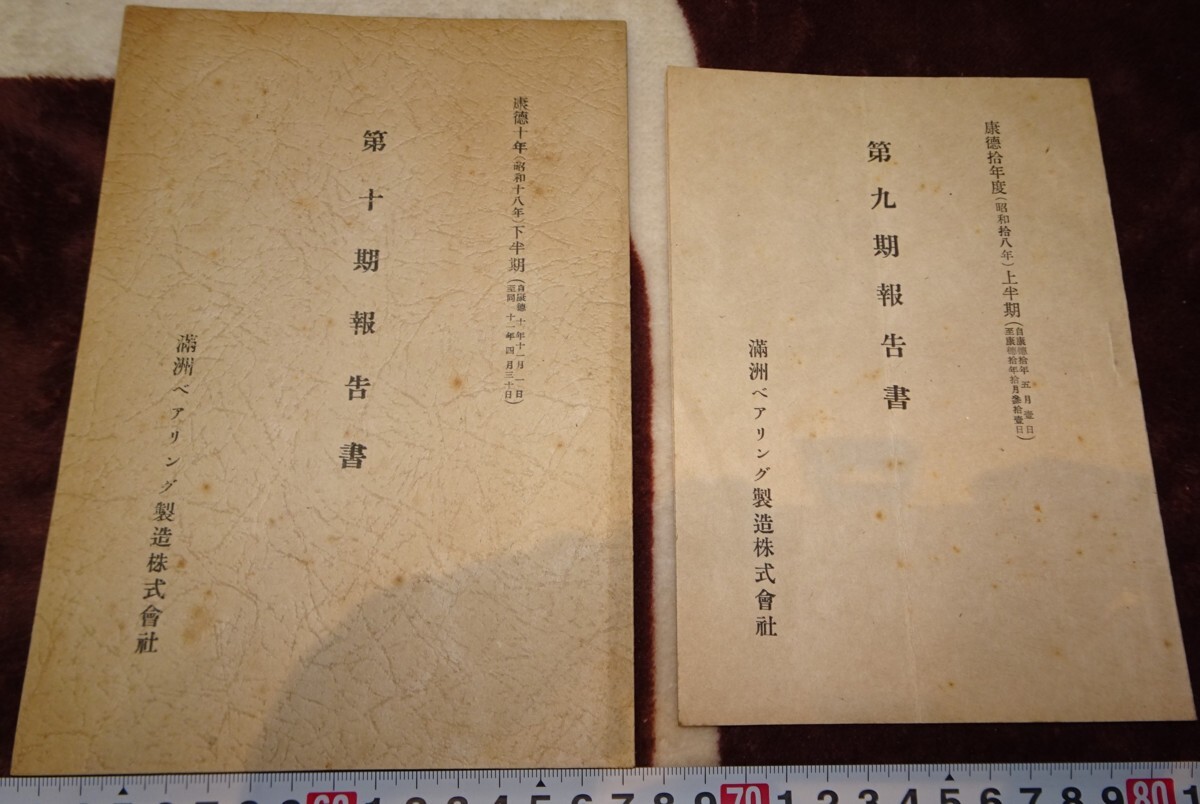 康德十年(昭和十八年)下半期(自康德十年十一月一日
至同十一年四月三十日)
第十期報告書
滿洲ベアリング製造株式會社
康德拾年度(昭和拾八年)上半期(自康德拾年五月壹日
至康德拾年拾月參拾壹日)
第九期報告書
滿洲ベアリング製造株式會社
1 2 3 4 5 6 7 8 9 70 1 2 3 4 5 6 7 8 9 80 1